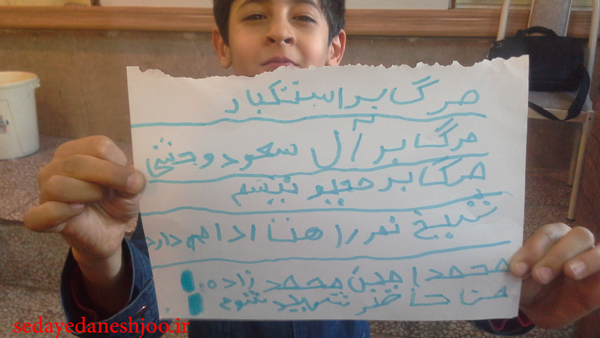 مرگ بر استکبار
مرگ بر آل سعود وحشی
مرگ بر صهیونیسم
شیخ نمر راهت ادامه دارد
محمد امین محمد زاده!
من حاضر شهید شوم!
sedayedaneshjoo.ir